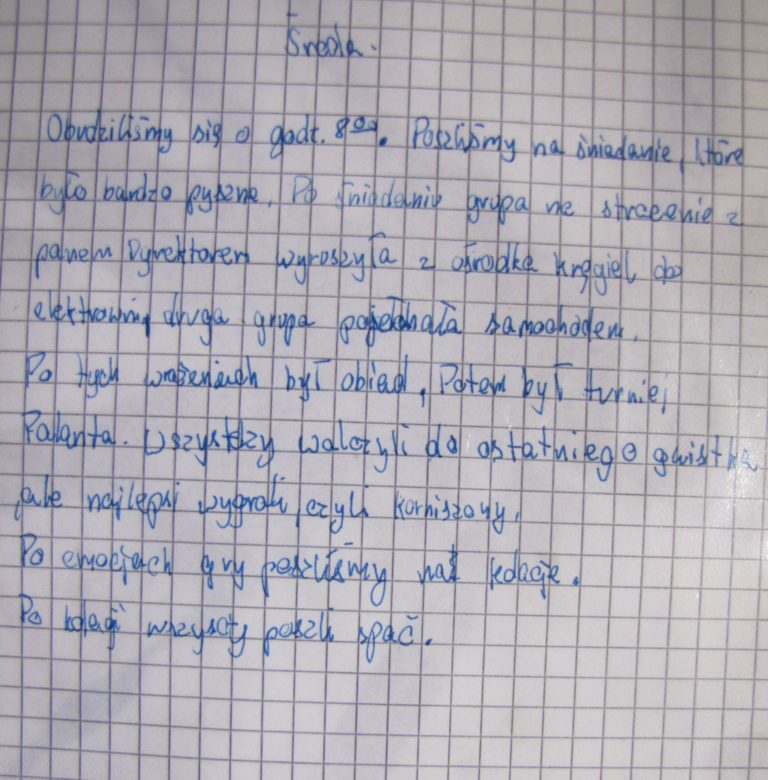 Środa.
Obudziliśmy się o godz. 8⁰⁰. Poszliśmy na śniadanie, które
było bardzo pyszne. Po śniadaniu grupa na z
panem Dyrektorem wyruszyła z ośrodka kręgiel do
elektrowni, druga grupa pojechała samochodem.
Po tych wrażeniach był obiad, Potem był turniej
Palanta. Wszystkzy walczyli do ostatniego gwistka
,ale najlepsi wygrali, czyli korniszony.
Po emocjach gry poszliśmy na kolacje.
Po kolacji wszyscy poszli spać.